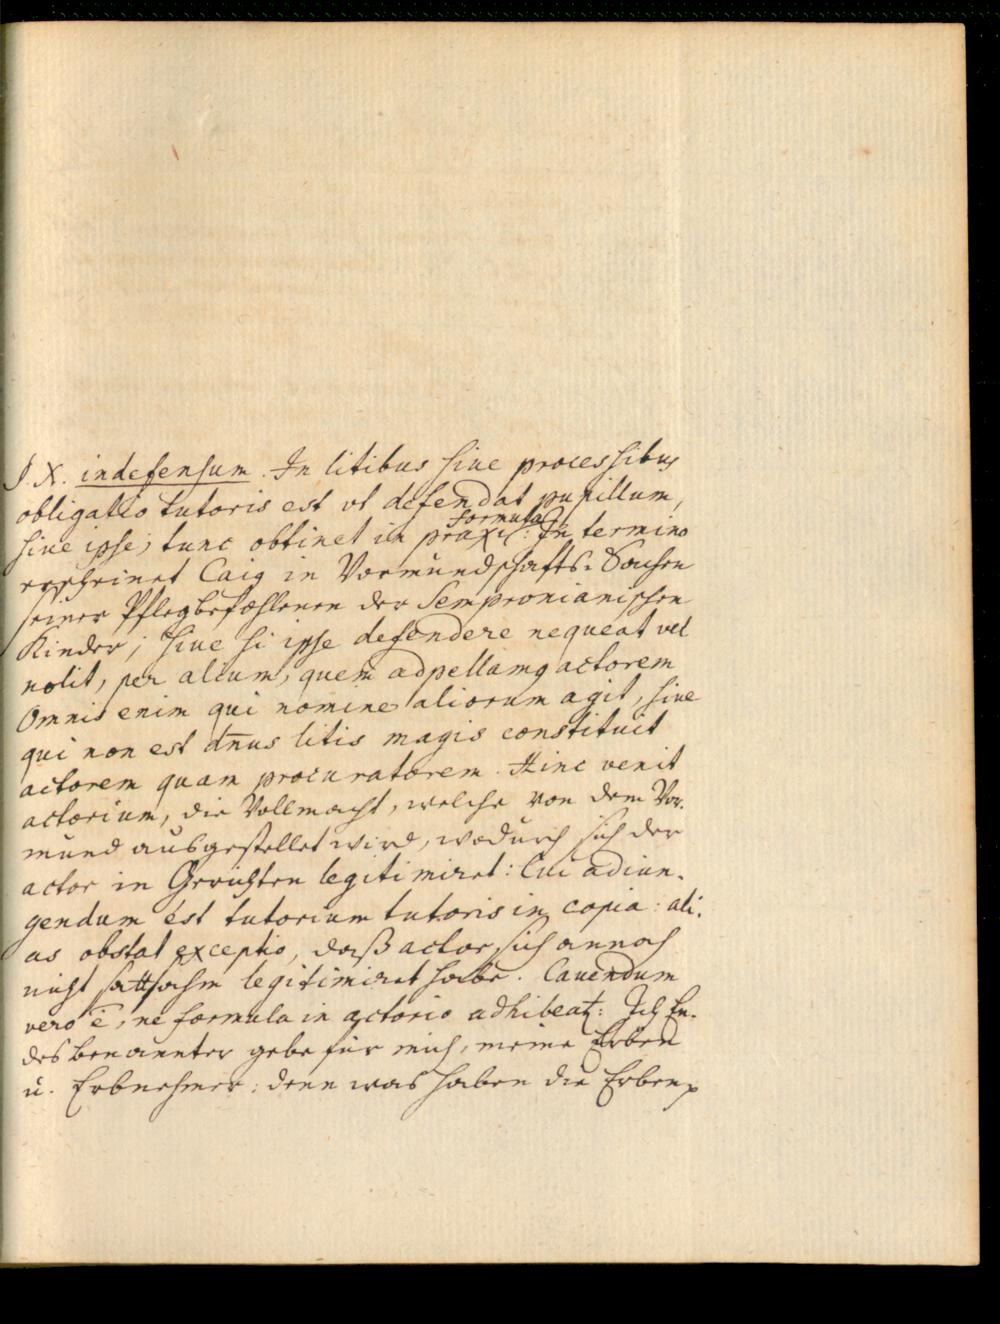 §. X. indefensum. In litibus sive processibus
obligatio tutoris est vt defendat pupillum,
sive ipse; tunc obtinet in praxi formula: In termino
erscheinet Caig in Vormundschafts-Sachen
seiner Pflegbefohlenen der Sempronianischen
Kinder; sive si ipse defendere nequeat vel
nolit, per alium, quem adpellamg actorem
Omnis enim qui nomine aliorum agit, sive
qui non est dn̄us litis magis constituit
actorem quam procuratorem. Hinc venit
actorium, die Vollmacht, welche von dem Vor-
mund ausgestellet wird, wodurch sich der
actor in Gerichten legitimiret: Cui adiun-
gendum est tutorium tutoris in copia: ali-
as obstat exceptio, daß actor sich annoch
nicht sattsahm legitimiret habe. Cauendum
vero ē, ne formula in actorio adhibeatr: Ich En-
des benannter gebe für mich, meine Erben
u. Erbnehmer; denn was haben die Erben